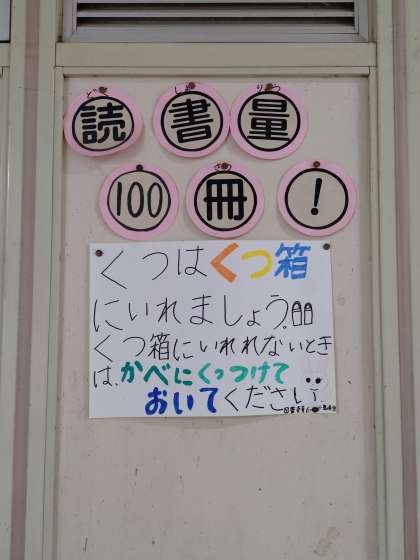 どく しょ りょう
読書量
さつ
100冊!
くつはくつ箱
にいれましょう。
くつ箱にいれれないとき
は、かべにくっつけて
おいてください。